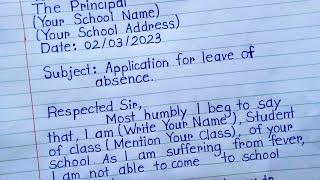 The Principal
(Your School Name)
(Your School Address)
Date: 02/03/2023
Subject: Application for leave of
absence.
Respected Sir,
Most humbly I beg to say
that, I am (Write Your Name), Student
of class (Mention Your Class), of your
school. As I am suffering from fever,
I am not able to come to school